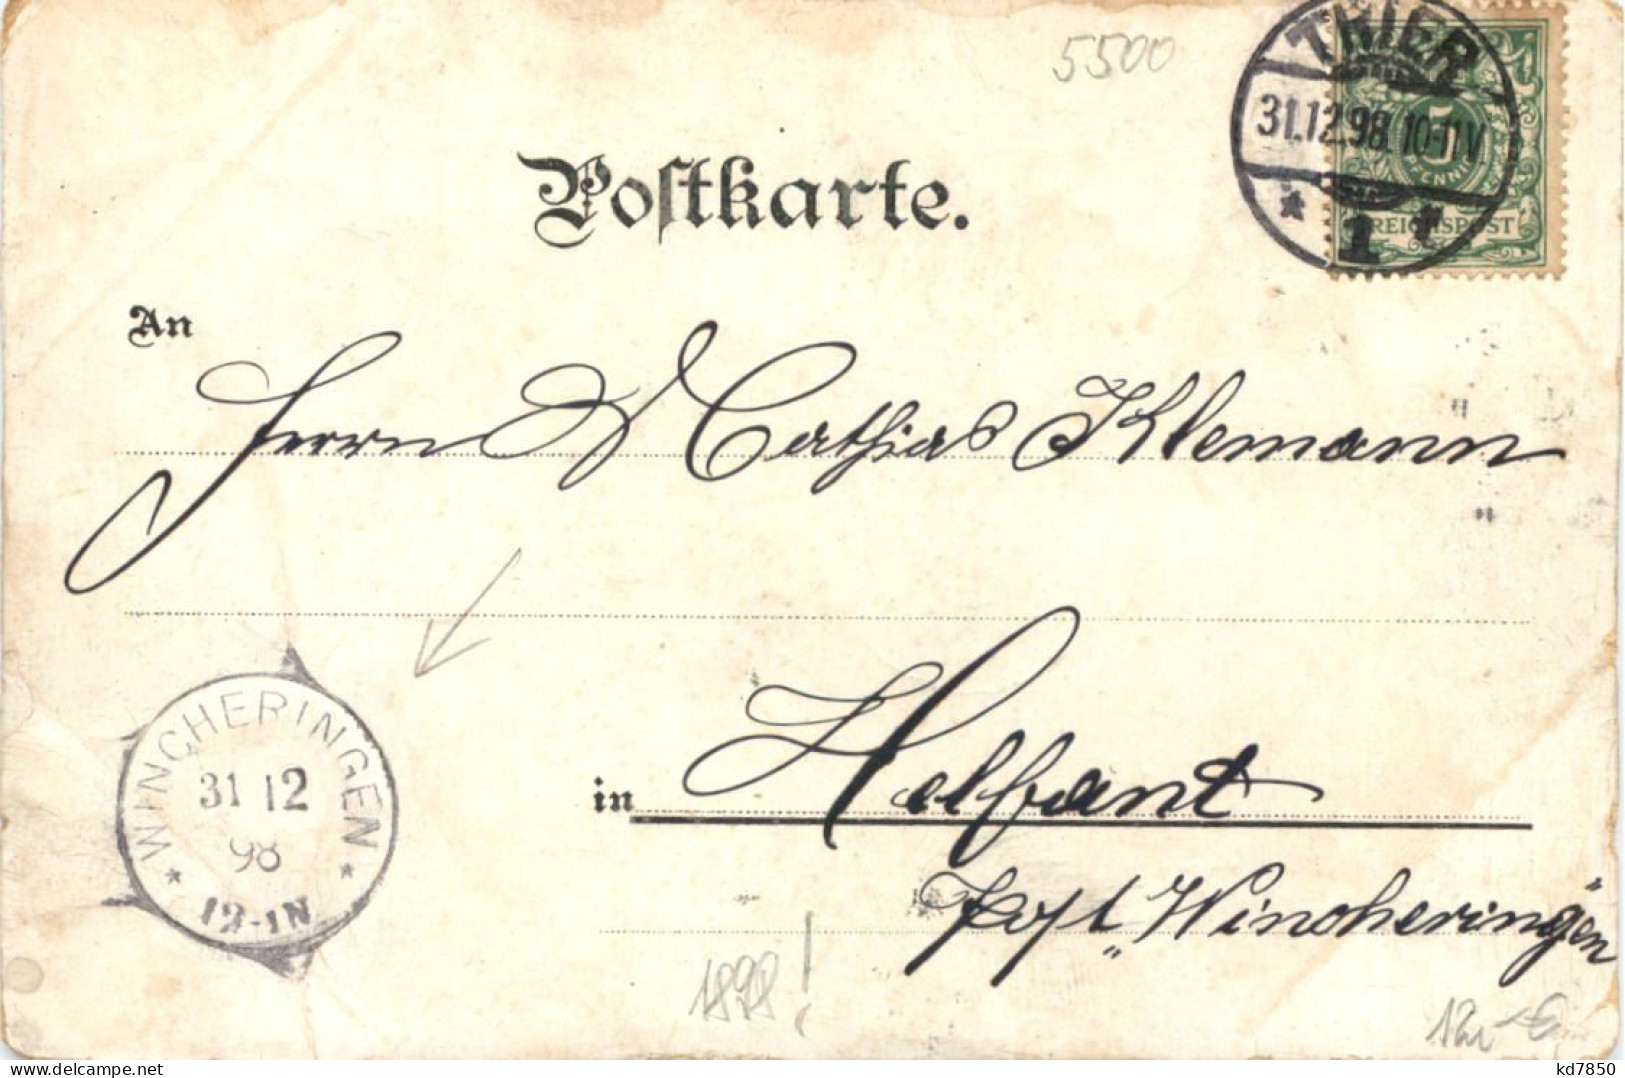 5500
TRIER
31.12.98. 10-11V
1
5
PFENNIG
REICHSPOST
Postkarte.
An
Herrn Mathias Klemann
WINCHERINGEN
31 12
98
12-1N
in Helfant
Post „Wincheringen"
1898!
kd7850